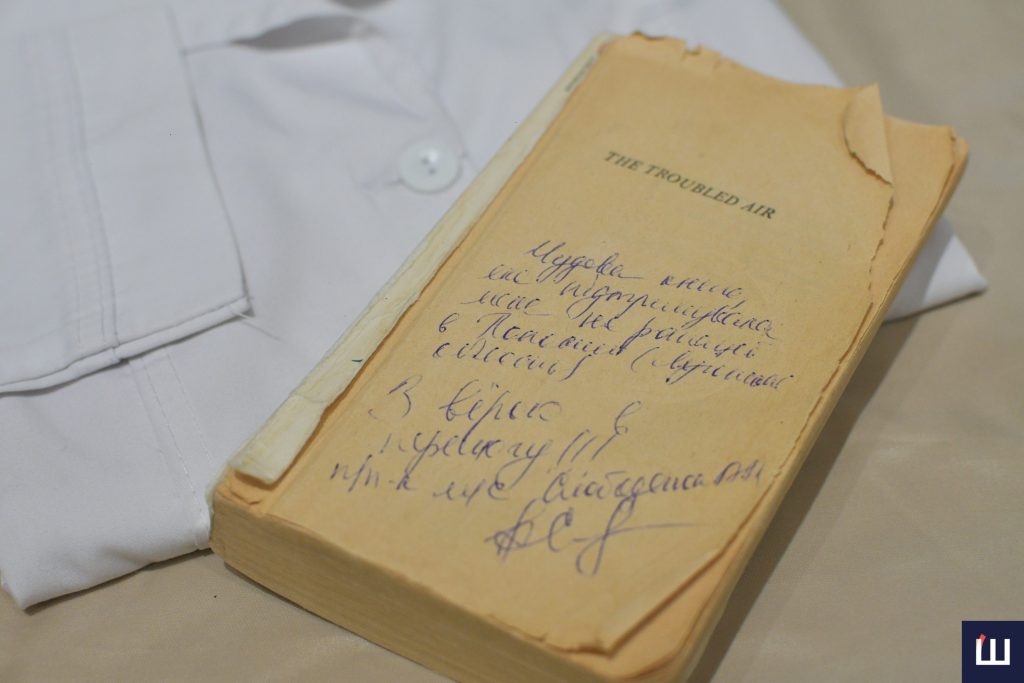 THE TROUBLED AIR
Чудова книга,
яка підтримувала
мене на ротації
в Попасній (Луганської
області)
З вірою в
перемогу!!!
пр-к м/с Слободяна
Ш